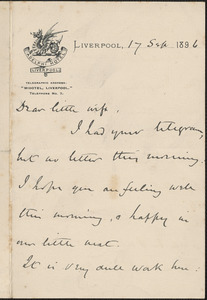 ADELPHI HOTEL
LIVERPOOL
TELEGRAPHIC ADDRESS:
"MIHOTEL, LIVERPOOL."
TELEPHONE No. 7.
LIVERPOOL, 17 Sep 1896
Dear little wife.
I had your telegram
but no letter this morning.
I hope you are feeling well
this morning, & happy in
our little nest.
It is very dull work here: